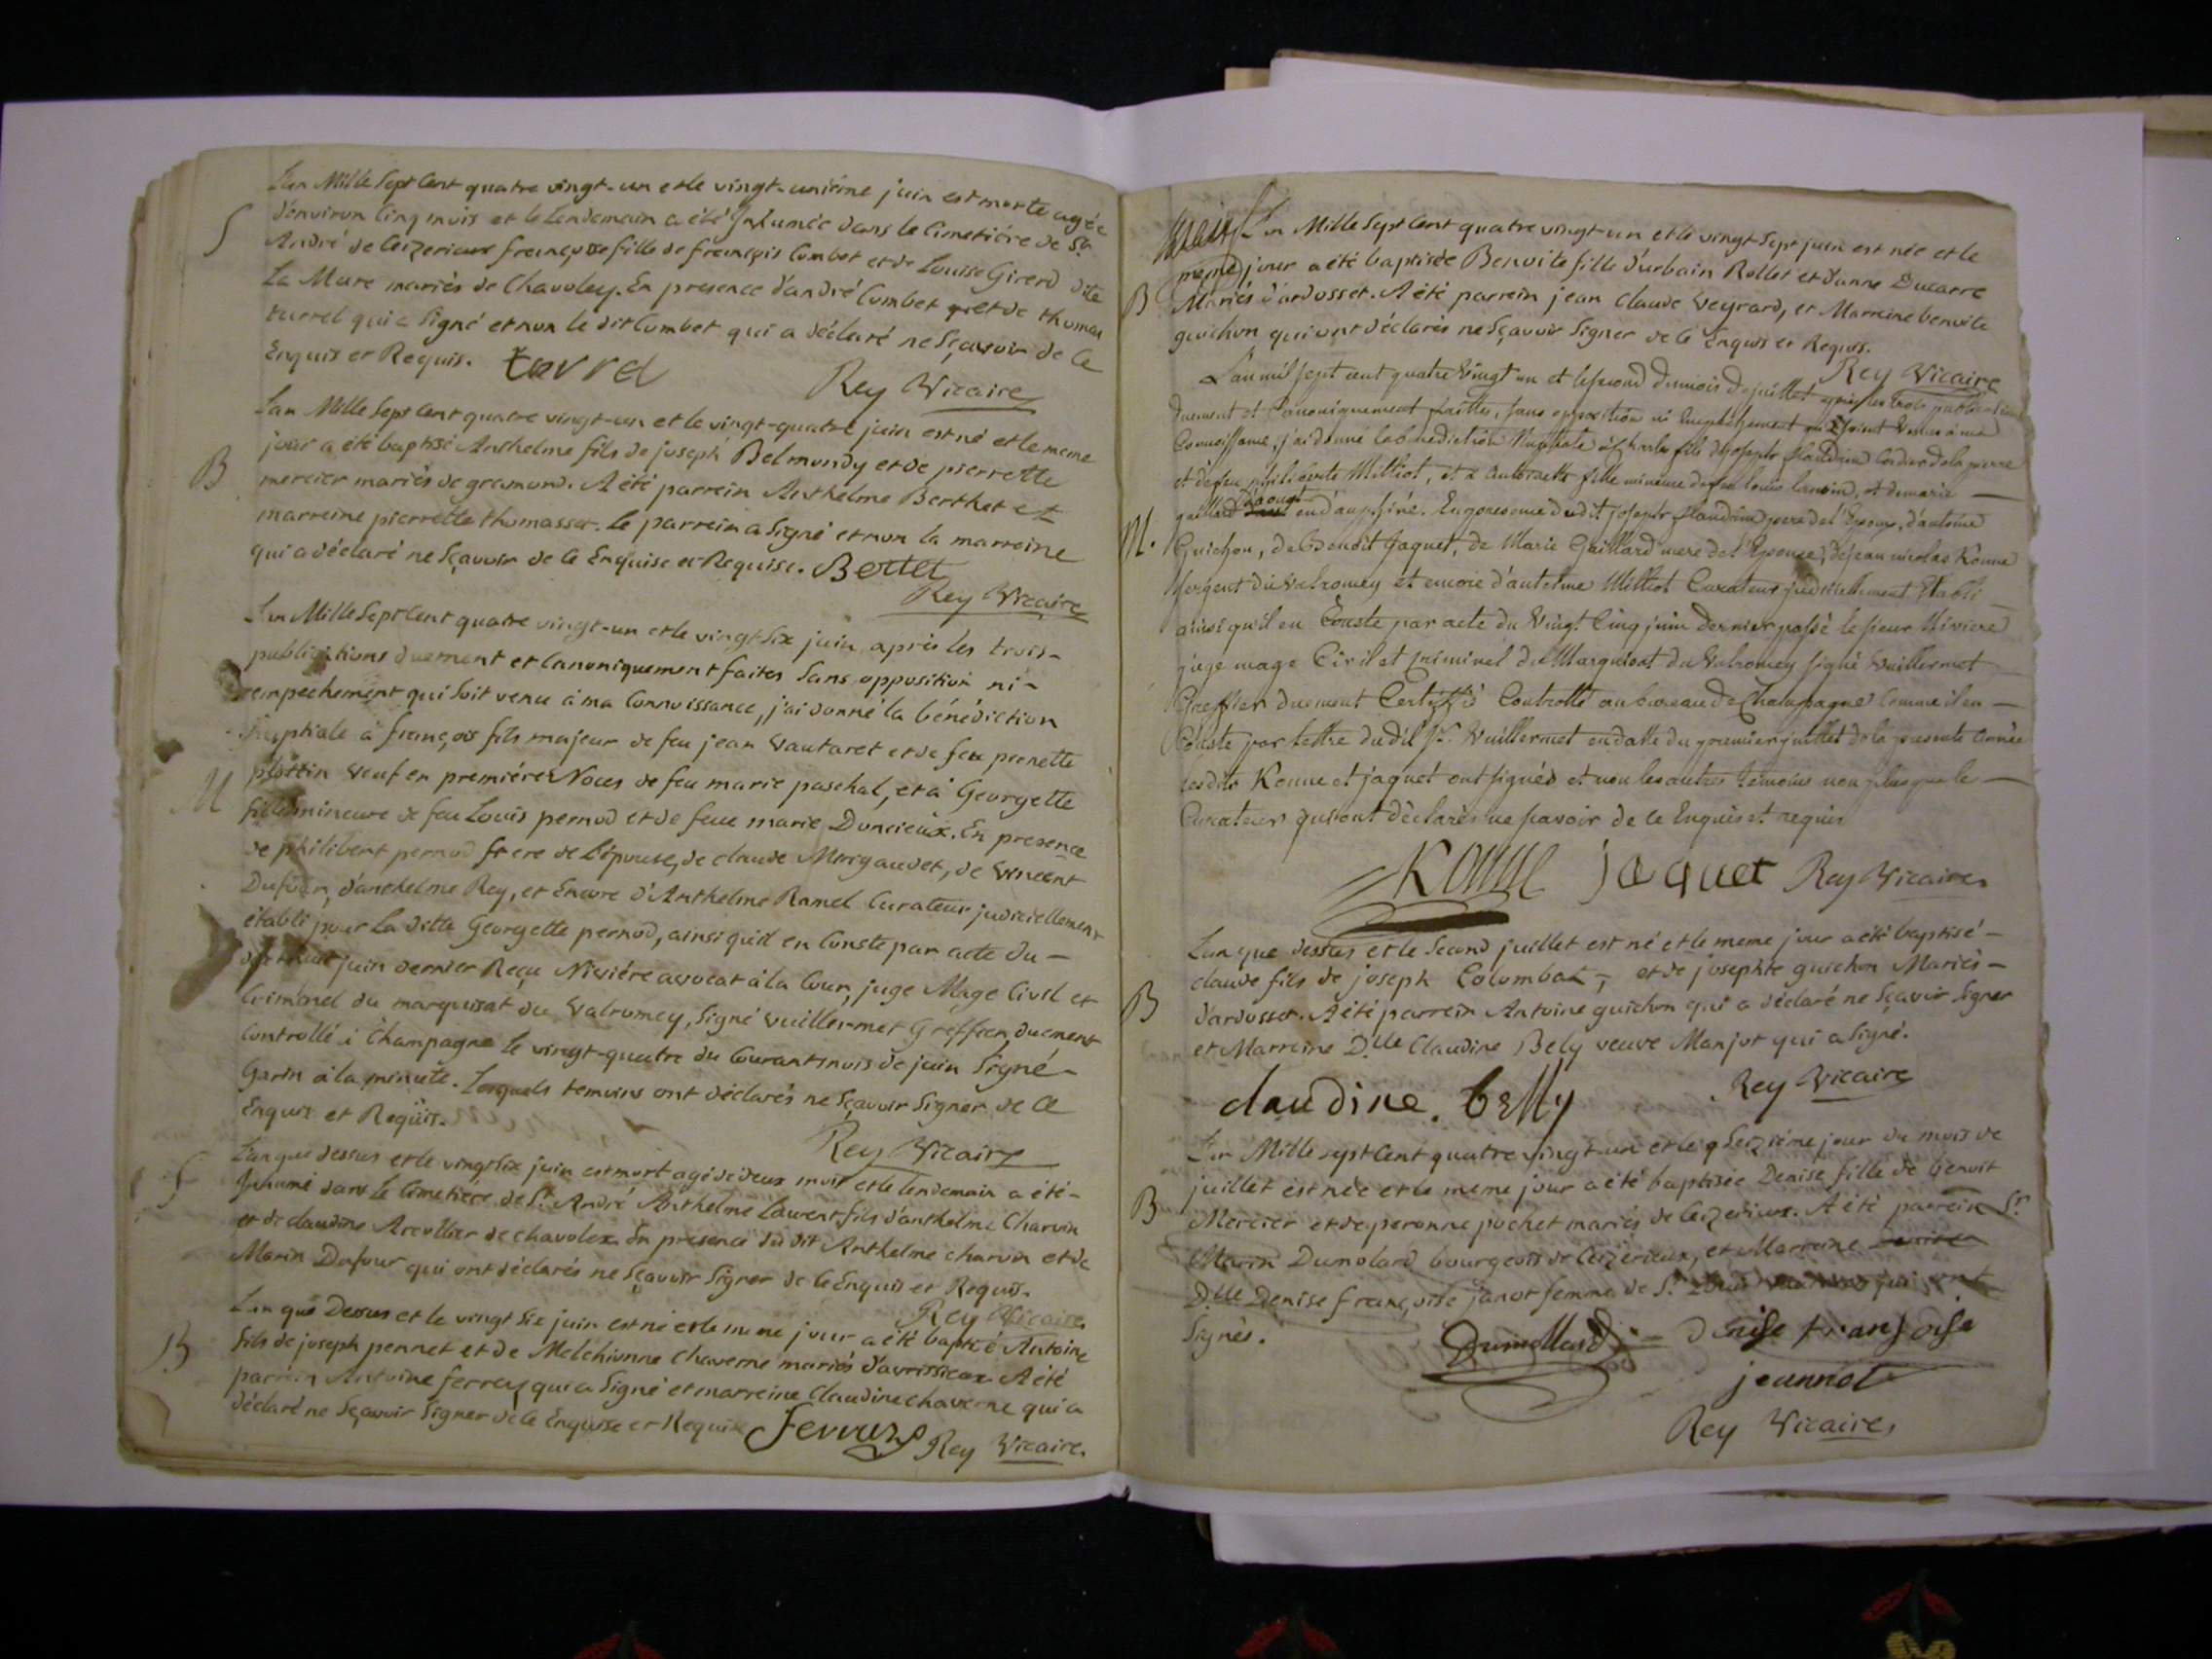 L'an Mille Sept Cent quatre vingt-un et le vingt-uniéme juin est morte agée
S
d'environ Cinq mois et le Lendemain a été Inhumée dans le Cimetiére de St.
André de Ceizerieux françoise fille de françois Combet et de Louise Girerd dite
La Mure mariés de Chavoley. En presence d'andré Combet et de thomas
turrel qui a Signé et non le dit Combet qui a déclaré ne Sçavoir de Ce
Enquis et Requis. turrel
Rey Vicaire
L'an Mille Sept Cent quatre vingt-un et le vingt-quatre juin est né et le meme
B
jour a été baptisé Anthelme fils de joseph Belmondy et de pierrette
mercier mariés de gramond. A été parrein Anthelme Berthet et
marreine pierrette thomasset. le parrein a Signé et non la marreine
qui a déclaré ne Sçavoir de Ce Enquise et Requise. Bertet
Rey Vicaire
L'an Mille Sept Cent quatre vingt-un et le vingt Six juin après les trois-
publications duement et Canoniquement faites Sans opposition ni-
empechement qui Soit venu à ma Connoissance, j'ai donné la bénédiction
Nuptiale à françois fils majeur de feu jean Vautaret et de feu pernette
plottin Veuf en premiéres Noces de feu marie paschal, et à Georgette
M
fille mineure de feu Louis pernod et de feue marie Duncieux. En presence
de philibert pernod frere de L'épouse, de claude Morgaudet, de Vincent
Dufour, d'anthelme Rey, et Encore d'Anthelme Ramel Curateur judiciellement
établi pour La ditte Georgette pernod, ainsi qu'il en Conste par acte du-
juin dernier Reçu Niviére avocat à la Cour, juge Mage Civil et
Criminel du marquisat du Valromey, Signé Vuillermet Greffier, duement
Controllé à Champagne Le vingt-quatre du Courant mois de juin Signé-
Garin à la minute. Lesquels temoins ont déclarés ne Sçavoir Signer de Ce
Enquis et Requis.
Rey Vicaire
L'an que dessus et le vingt Six juin est mort agé de deux mois et le lendemain a été-
S
Inhumé dans le Cimetiére de St. André Anthelme Laurent fils d'anthelme Charvin
et de claudine Arcollier de chavolex. En presence du dit Anthelme charvin et de
Marin Dufour qui ont déclarés ne Sçavoir Signer de Ce Enquis et Requis.
Rey Vicaire
L'an que Dessus et le vingt Six juin est né et le meme jour a été baptisé Antoine
B
fils de joseph pennet et de Melchionne Chaverne mariés d'avrissieux. A été
parrein Antoine ferraz qui a Signé et marreine Claudine chaverne qui a
déclaré ne Sçavoir Signer de Ce Enquise et Requise
Rey Vicaire
L'an Mille Sept Cent quatre vingt-un et le vingt Sept juin est née et le
meme jour a été baptisée Benoite fille d'urbain Rollet et d'anne Ducarre
B
Mariés d'ardosset. A été parrein jean claude Veyrard, et Marreine benoite
guichon qui ont déclarés ne Sçavoir Signer de Ce Enquis et Requis.
Rey Vicaire
L'an mil sept cent quatre vingt un et le second du mois de juillet après les trois publications
duement et Canoniquement faittes, sans opposition ni Empêchement qui soient venus à ma
Connoissance, j'ai donné la bénédiction Nuptiale à Charles fils de joseph flandrin
et de feu philiberte Milliot, et à antoinette fille mineure de feu louis et de marie
gaillard en dauphiné. En presence du dit joseph flandrin pere de l'Epoux, d'antoine
M.
Guichon, de Benoit Jaquet, de Marie Gaillard mere de l'Epouse, de jean nicolas Konne
sergent du Valromey et encore d'antelme Milliot Curateur judiciellement Etabli
ainsi qu'il en Conste par acte du Vingt Cinq juin dernier passé le sieur Niviere
juge mage Civil et criminel du Marquisat du Valromey signé Vuillermet
Greffier duement Certifié Controllé au bureau de Champagne Comme il en
Conste par lettre du dit Sr. Vuillermet en datte du premier juillet de la presente année
lesdits Konne et jaquet ont signés et non les autres temoins non plus que le
Curateur qui ont déclarés ne savoir de ce Enquis et requis
Konne jaquet Rey Vicaire
L'an que dessus et le Second juillet est né et le meme jour a été baptisé-
claude fils de joseph Colombat, et de josephte guichon Mariés-
B
d'ardosset. A été parrein Antoine guichon qui a déclaré ne Sçavoir Signer
et Marreine D.lle Claudine Bely veuve Manjot qui a Signé.
Rey Vicaire
claudine. belly
L'an Mille sept Cent quatre vingt-un et le Seiziéme jour du mois de
juillet est née et le meme jour a été baptisée Denise fille de benoit
B
Mercier et de peronne pochet mariés de Ceizerieux. A été parrein Sr.
Marin Dumolard bourgeois de Ceizerieux, et Marreine
D.lle Denise françoise janot femme de Sr. qui ont
Signés.
Dumollard denise fransoise
jeannot
Rey Vicaire